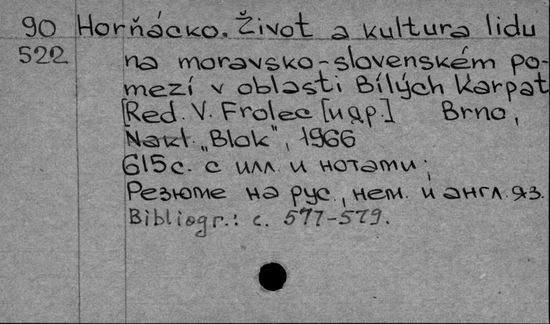 90 Horňácko. Život a kultura lidu
522 na moravsko-slovenském po-
mezí v oblasti Bílých Karpat
[Red. V. Frolec [и др.] Brno,
Nakl. „Blok", 1966
615 с. с илл. и нотами;
Резюме на рус., нем. и англ. яз.
Bibliogr.: с. 577-579.